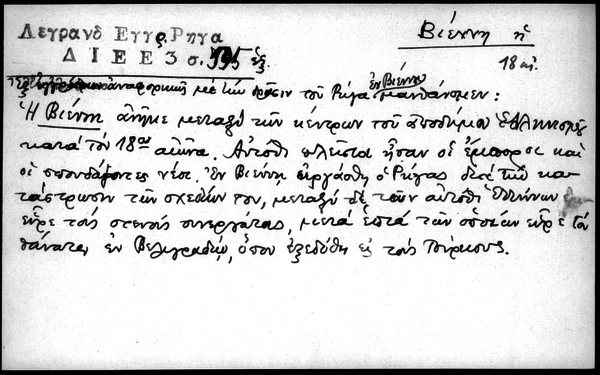 Βιέννη ἡ
18 αἰ.
Λεγρανδ Εγγρ. Ρηγα
Δ Ι Ε Ε 3 σ. 595 ἑξ.
ἀναφορικῶς μὲ τὴν δρᾶσιν τοῦ Ρήγα ἐν Βιέννῃ μανθάνομεν:
Ἡ Βιέννη ἀνῆκε μεταξὺ τῶν κέντρων τοῦ ἀποδήμου Ἑλληνισμοῦ
κατὰ τὸν 18ον αἰῶνα. Αὐτόθι πλεῖστοι ἦσαν οἱ ἔμποροι καὶ
οἱ σπουδάζοντες νέοι. Ἐν Βιέννῃ εἰργάσθη ὁ Ρήγας διὰ τὴν κα-
τάστρωσιν τῶν σχεδίων του, μεταξὺ δὲ τῶν αὐτόθι Ἑλλήνων
εὗρε τοὺς στενοὺς συνεργάτας, μετὰ ἑπτὰ τῶν ὁποίων εὗρε τὸν
θάνατον ἐν Βελιγραδίῳ, ὅπου ἐξεδόθη εἰς τοὺς Τούρκους.